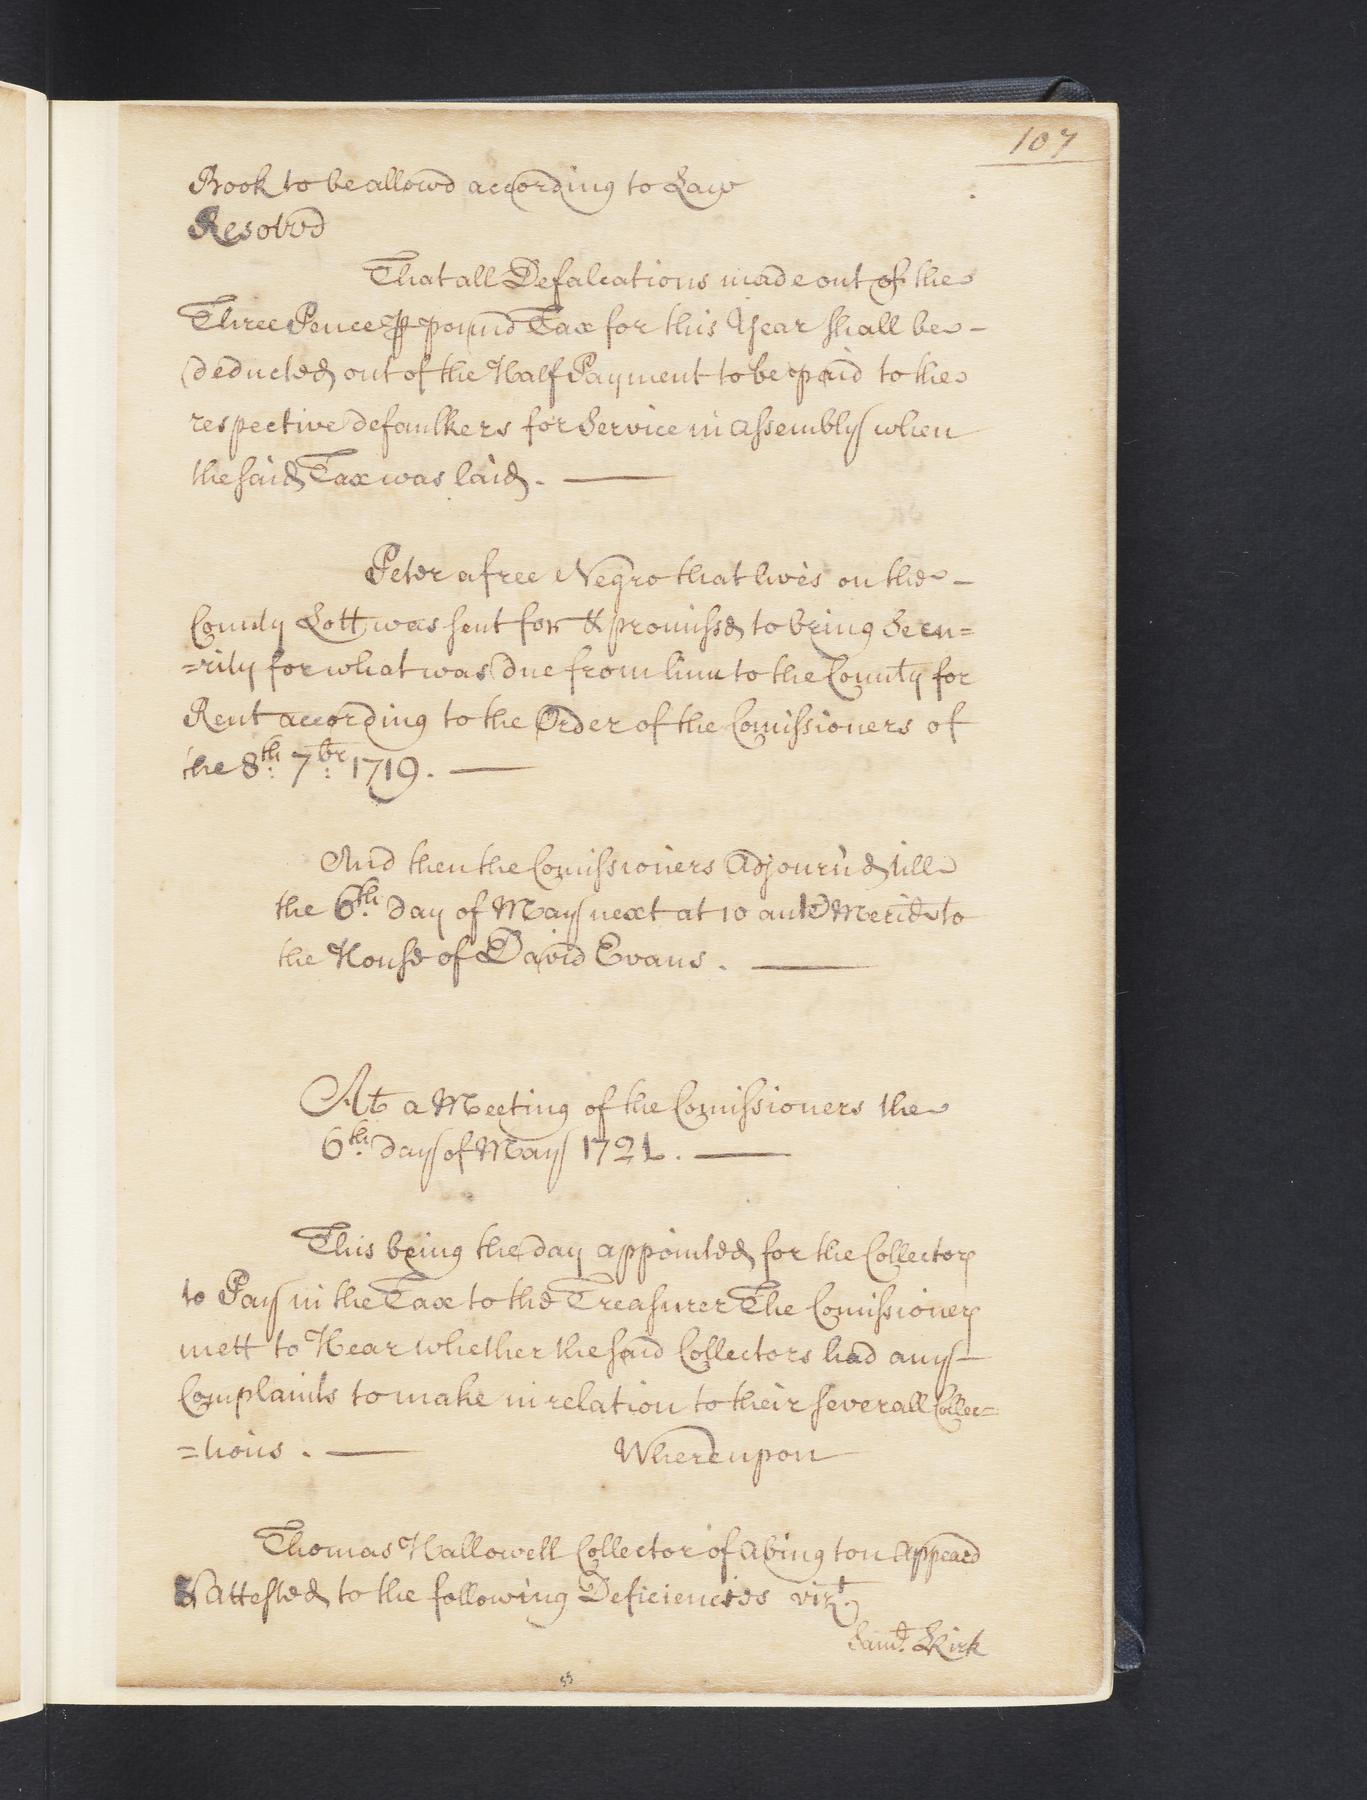 107
Book to be allowd according to Law
Resolvd
That all Defalcations made out of the
Three Pence ⅌ pound Tax for this Year shall be -
deducted out of the Half Payment to be paid to the
respective defaulkers for Service in Assembly when
the said Tax was laid. —
Peter a free Negro that lives on the -
County Lott was sent for & promissd to bring Secu=
=rity for what was due from him to the County for
Rent according to the Order of the Comissioners of
the 8th: 7br: 1719. —
And then the Comissioners Adjourn'd till
the 6th. day of May next at 10 ante Merid to
the House of David Evans. —
At a Meeting of the Comissioners the
6th. day of May 1721. —
This being the day appointed for the Collectors
to Pay in the Tax to the Treasurer The Comissioners
mett to Hear whether the said Collectors had any -
Complaints to make in relation to their severall Collec=
=tions. — Whereupon
Thomas Hallowell Collector of Abington Appeard
& attested to the following Deficiencies vizt.
Saml. Kirk